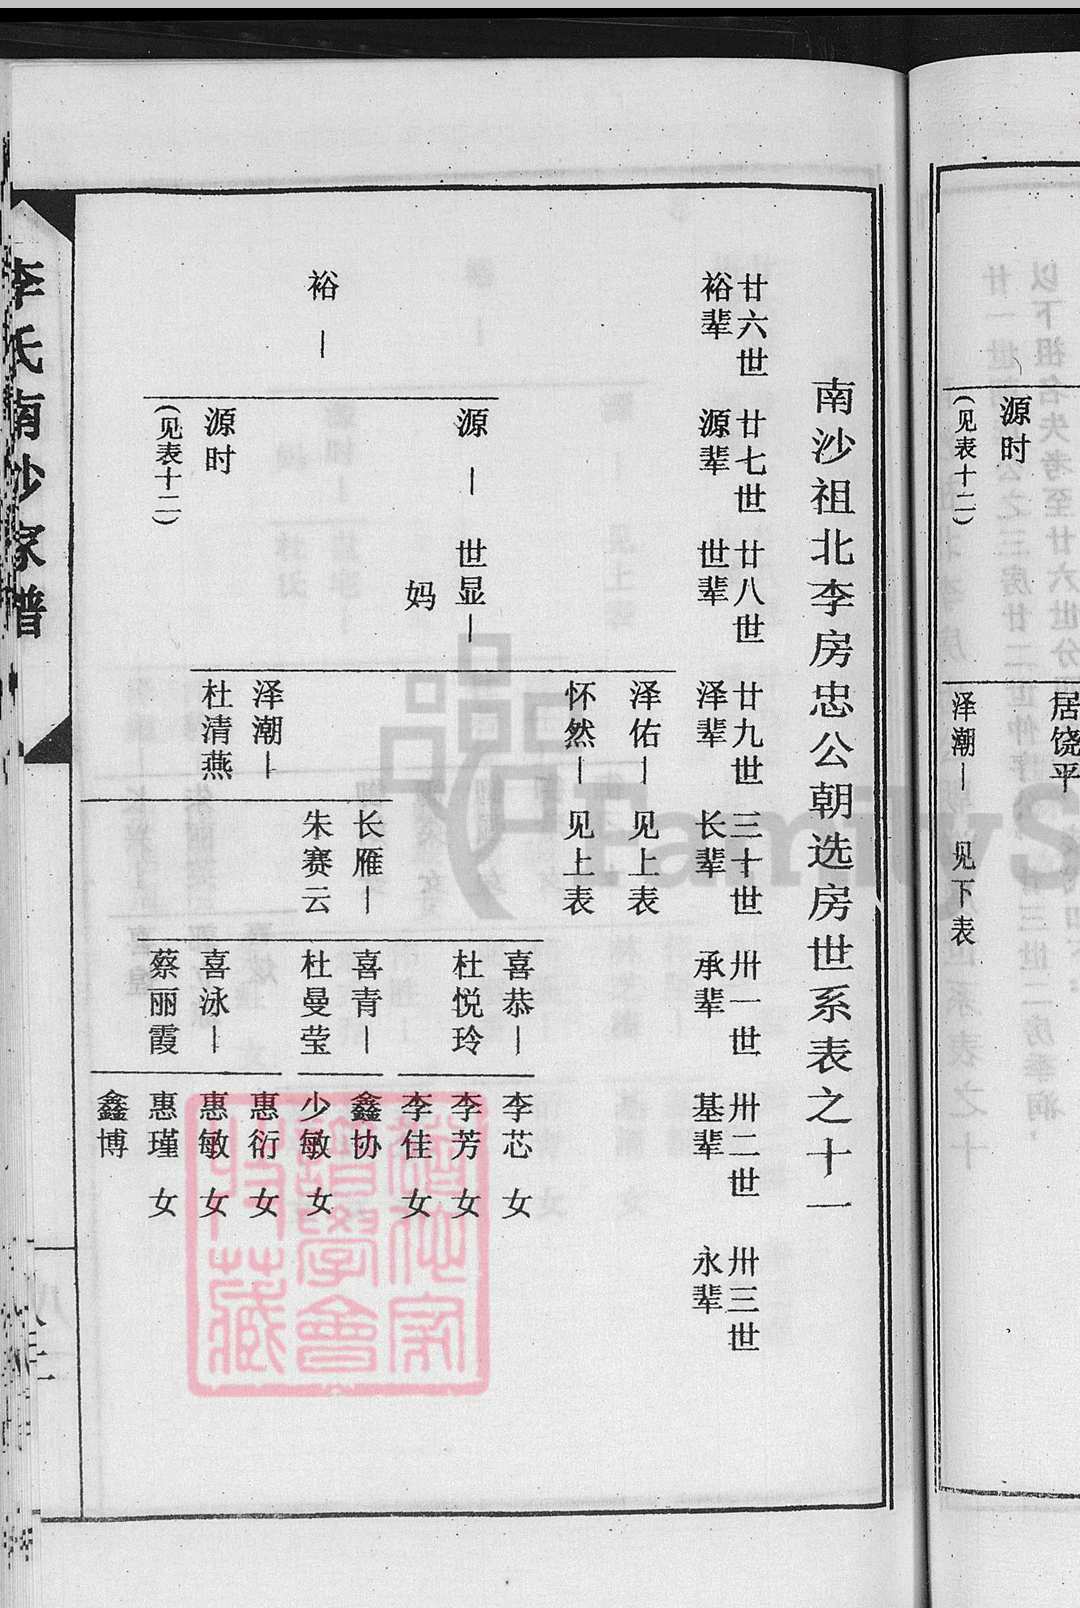 居饶平
源时
(见表十二)
泽潮— 见下表
南沙祖北李房忠公朝选房世系表之十一
廿六世 廿七世 廿八世 廿九世 三十世 卅一世 卅二世 卅三世
裕辈 源辈 世辈 泽辈 长辈 承辈 基辈 永辈
泽佑— 见上表
怀然— 见上表
喜恭— 李芯 女
源 — 世显—
杜悦玲 李芳 女
妈
李佳 女
长雁— 喜青— 鑫协
裕 —
朱赛云 杜曼莹 少敏 女
泽潮—
惠衍 女
源时 杜清燕 喜泳— 惠敏 女
(见表十二)
蔡丽霞 惠瑾 女
鑫博
李氏南沙家谱